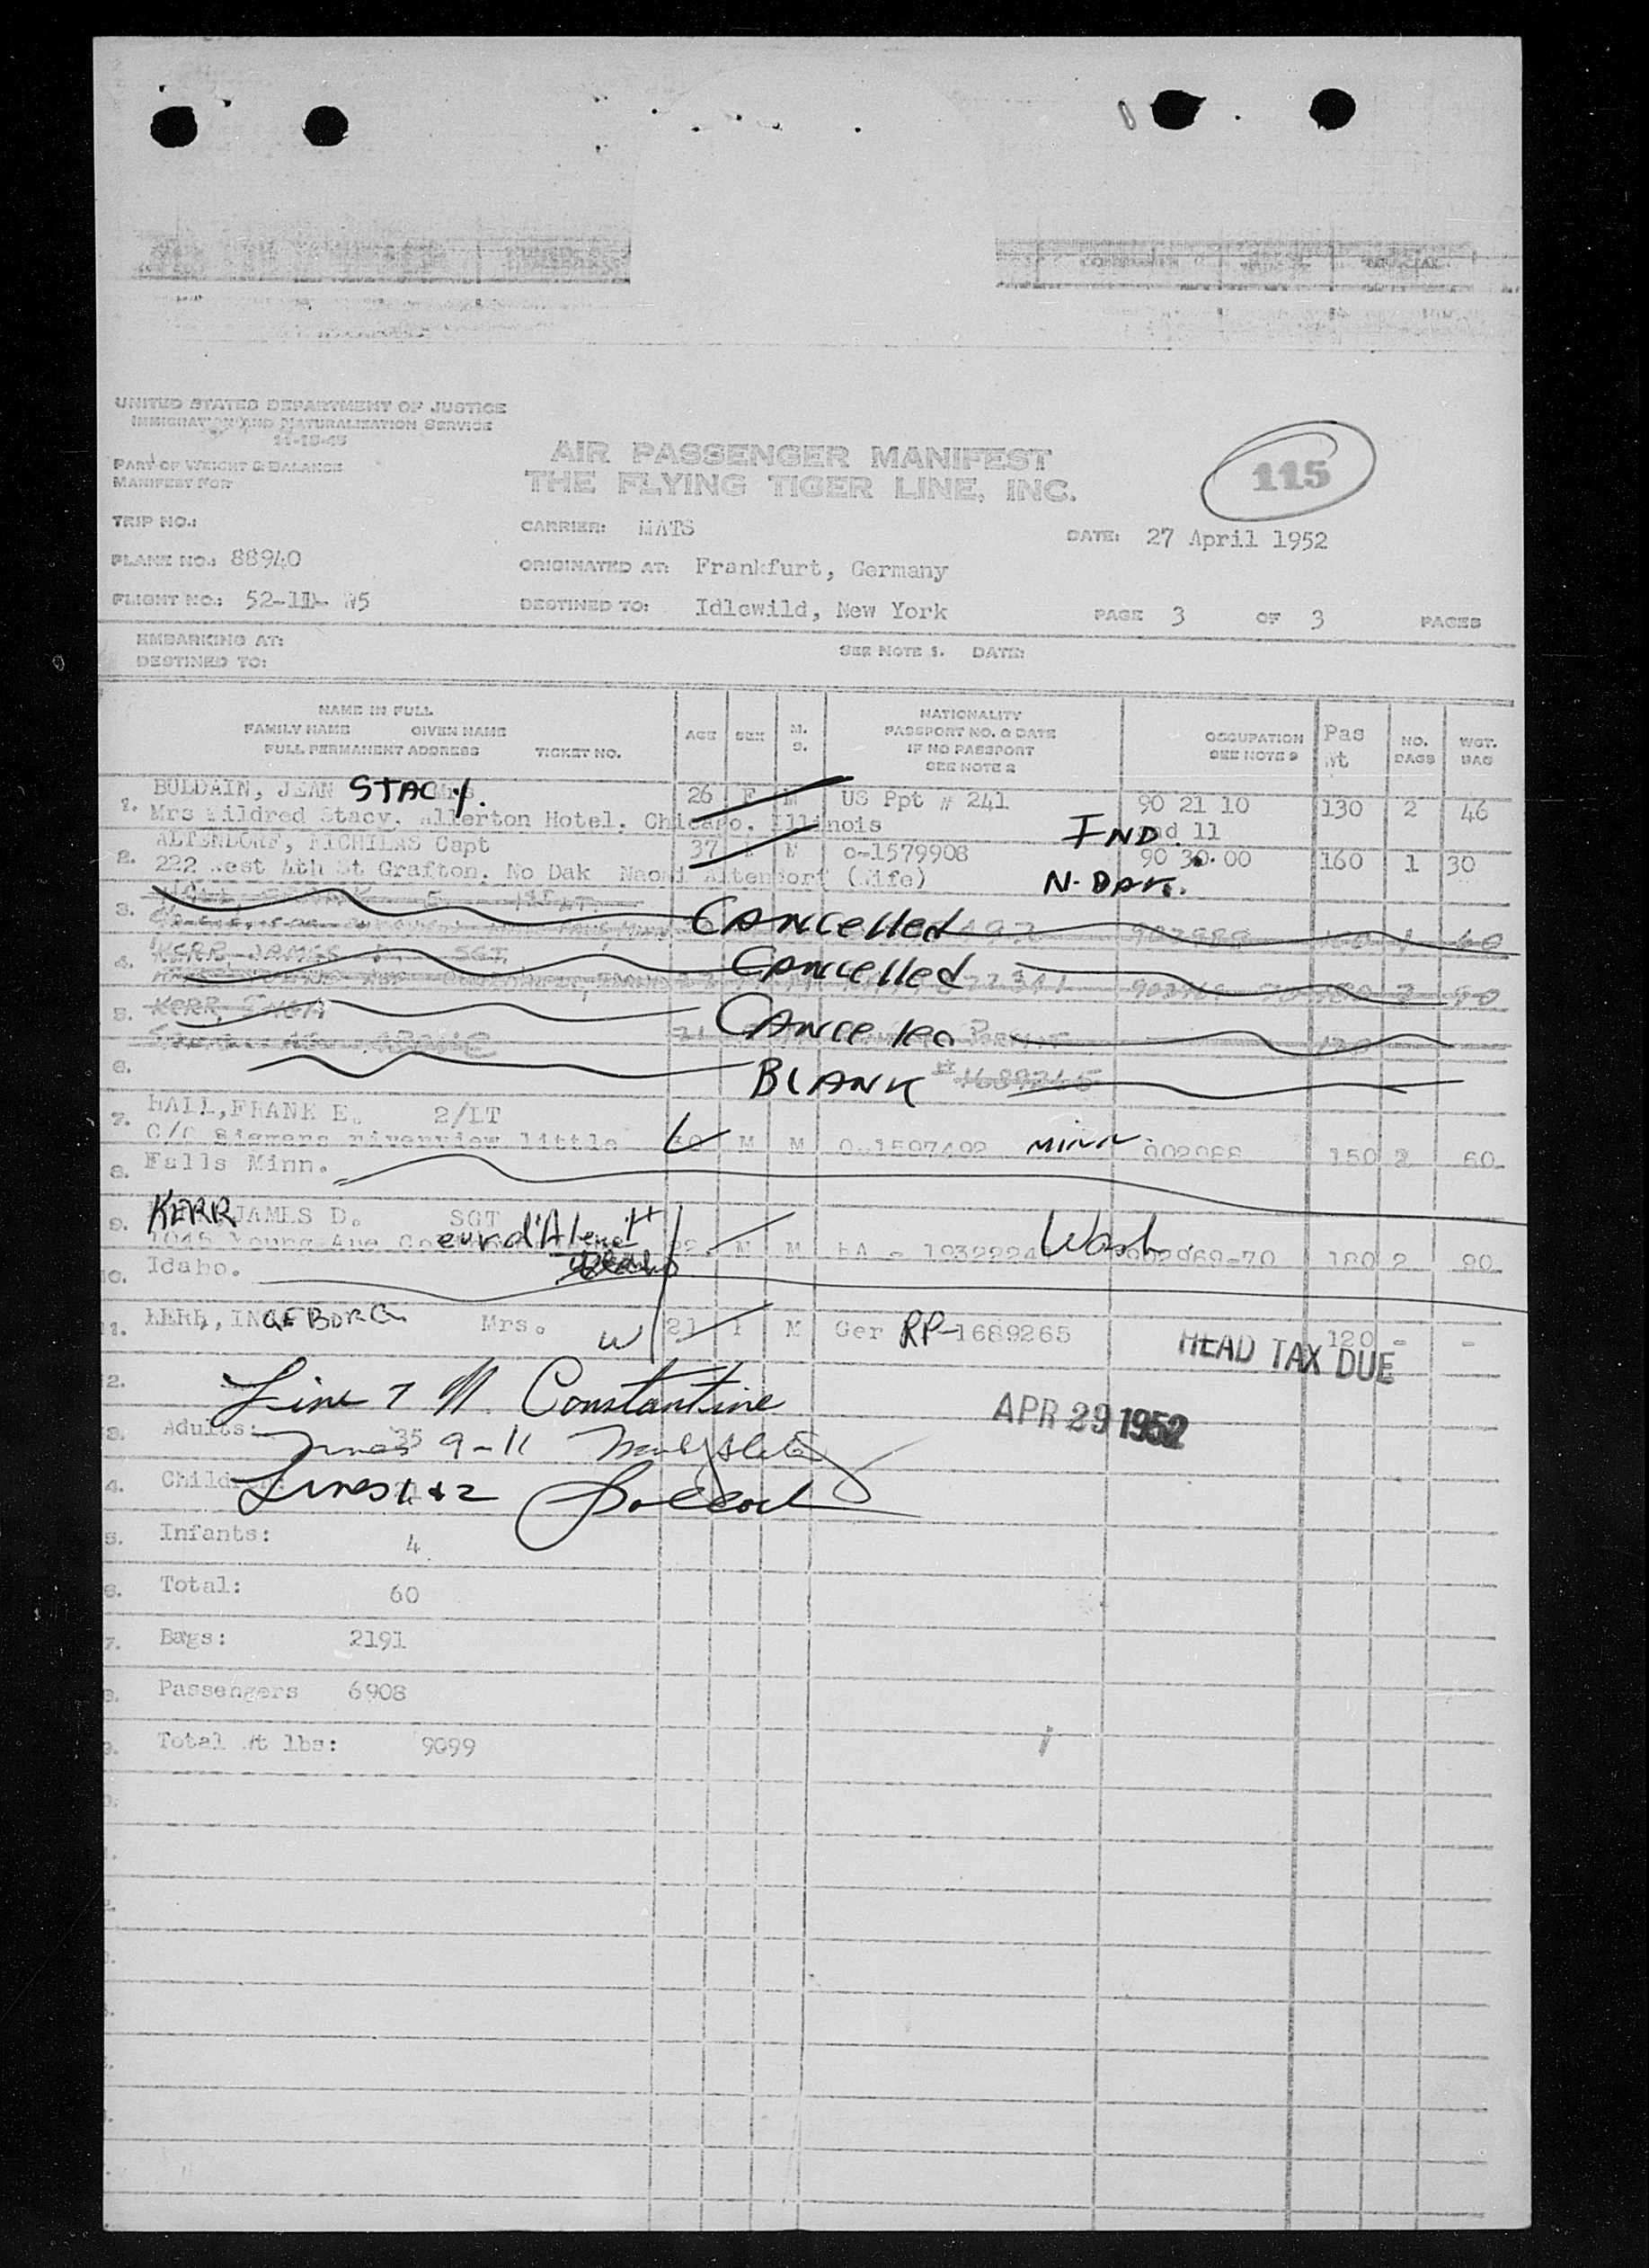 UNITED STATES DEPARTMENT OF JUSTICE
IMMIGRATION AND NATURALIZATION SERVICE
11-15-45
PART OF WEIGHT & BALANCE
MANIFEST FOR
AIR PASSENGER MANIFEST
THE FLYING TIGER LINE, INC.
115
TRIP NO.: CARRIER: MATS DATE: 27 April 1952
PLANE NO.: 88940 ORIGINATED AT: Frankfurt, Germany
FLIGHT NO.: DESTINED TO: Idlewild, New York PAGE 3 OF 3 PAGES
EMBARKING AT: SEE NOTE 1. DATE:
DESTINED TO:
NAME IN FULL
FAMILY NAME GIVEN NAME
FULL PERMANENT ADDRESS TICKET NO.
AGE SEX M. S.
NATIONALITY
PASSPORT NO. & DATE
IF NO PASSPORT
SEE NOTE 2
OCCUPATION
SEE NOTE 2
Pas Wt
NO. BAGS
WGT. BAG
1. BULDAIN, JEAN STACY. Mrs 26 F M US Ppt # 241 90 21 10 130 2 46
Mrs Mildred Stacy, Allerton Hotel, Chicago, Illinois IND. 11
2. ALTENDORF, NICHILAS Capt 37 M o-1579908 90 30.00 160 1 30
222 West 4th St Grafton, No Dak Naomi Altendorf (Wife) N. DAK.
3. Cancelled
4. KERR JAMES D. SGT Cancelled
5. KERR, INGA Cancelled
6. BLANK #1689265
7. HALL, FRANK E. 2/LT
C/O Siemers riverview little 30 M M O-1597492 MINN. 902988 150 2 60
8. Falls Minn.
9. KERR JAMES D. SGT
1045 Young Ave Coeur d'Alene M M RA - Wash. 902969-70 180 2 90
10. Idaho.
11. KERR, INGEBORG Mrs. W/ 21 F M Ger RP-1689265 120 - -
HEAD TAX DUE
APR 29 1952
12. Line 7 N. Constantine
3. Adults: 35
Lines 9-11
4. Child
Lines 1 & 2
5. Infants: 4
6. Total: 60
7. Bags: 2191
8. Passengers 6908
9. Total Wt lbs: 9099